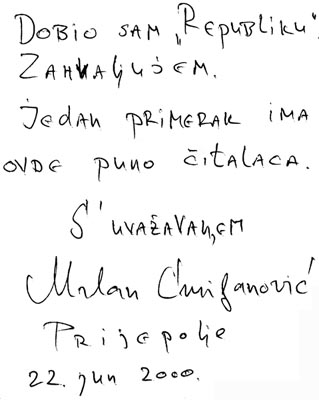 DOBIO SAM „REPUBLIKU".
ZAHVALJUJEM.
JEDAN PRIMERAK IMA
OVDE PUNO ČITALACA.
S' UVAŽAVANJEM
Milan
Prijepolje
22. jun 2000.